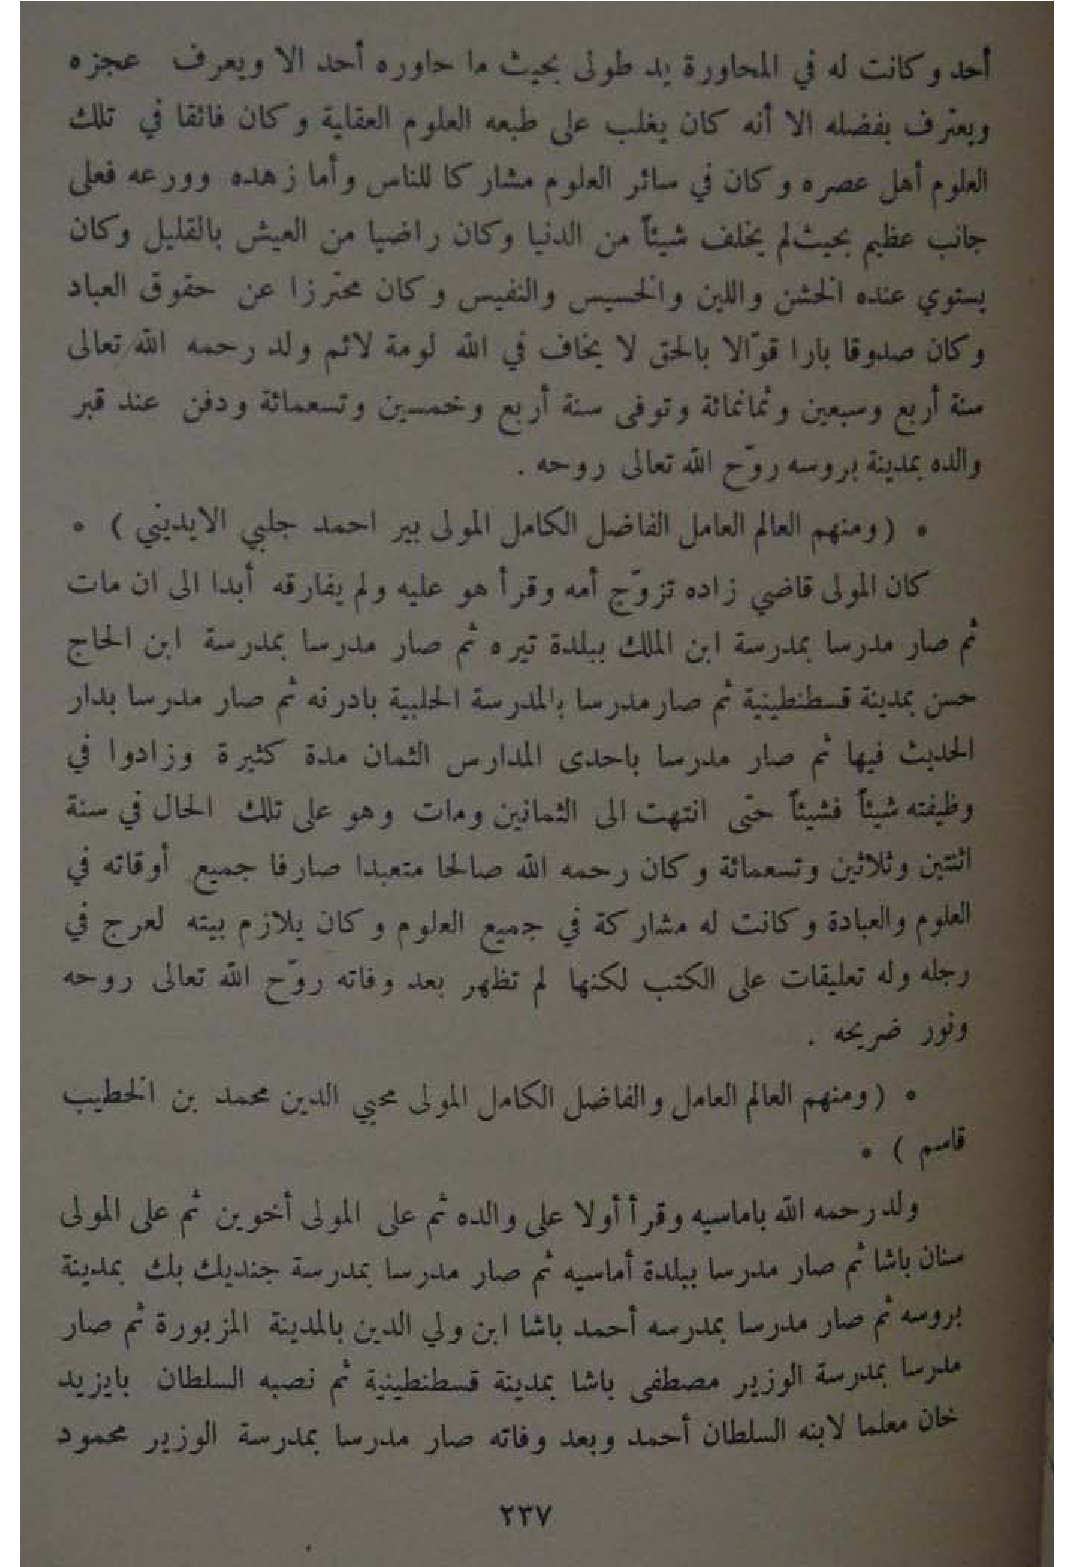 أحد وكانت له في المحاورة يد طولى بحيث ما حاوره أحد الا ويعرف عجزه
ويعترف بفضله الا أنه كان يغلب على طبعه العلوم العقلية وكان فائقا في تلك
العلوم أهل عصره وكان في سائر العلوم مشاركا للناس وأما زهده وورعه فعلى
جانب عظيم بحيث لم يخلف شيئاً من الدنيا وكان راضيا من العيش بالقليل وكان
يستوي عنده الخشن واللين والخسيس والنفيس وكان محترزا عن حقوق العباد
وكان صدوقا بارا قوّالا بالحق لا يخاف في الله لومة لائم ولد رحمه الله تعالى
سنة أربع وسبعين وثمانمائة وتوفى سنة أربع وخمسين وتسعمائة ودفن عند قبر
والده بمدينة بروسه روّح الله تعالى روحه .
* ( ومنهم العالم العامل الفاضل الكامل المولى بير احمد جلبي الايديني ) *
كان المولى قاضي زاده تزوّج أمه وقرأ هو عليه ولم يفارقه أبدا الى ان مات
ثم صار مدرسا بمدرسة ابن الملك ببلدة تيره ثم صار مدرسا بمدرسة ابن الحاج
حسن بمدينة قسطنطينية ثم صار مدرسا بالمدرسة الحلبية بادرنه ثم صار مدرسا بدار
الحديث فيها ثم صار مدرسا باحدى المدارس الثمان مدة كثيرة وزادوا في
وظيفته شيئاً فشيئاً حتى انتهت الى الثمانين ومات وهو على تلك الحال في سنة
اثنتين وثلاثين وتسعمائة وكان رحمه الله صالحا متعبدا صارفا جميع أوقاته في
العلوم والعبادة وكانت له مشاركة في جميع العلوم وكان يلازم بيته لعرج في
رجله وله تعليقات على الكتب لكنها لم تظهر بعد وفاته روّح الله تعالى روحه
ونور ضريحه .
* ( ومنهم العالم العامل والفاضل الكامل المولى محيي الدين محمد بن الخطيب
قاسم ) *
ولد رحمه الله باماسيه وقرأ أولا على والده ثم على المولى أخوين ثم على المولى
سنان باشا ثم صار مدرسا ببلدة أماسيه ثم صار مدرسا بمدرسة جنديك بك بمدينة
بروسه ثم صار مدرسا بمدرسه أحمد باشا ابن ولي الدين بالمدينة المزبورة ثم صار
مدرسا بمدرسة الوزير مصطفى باشا بمدينة قسطنطينية ثم نصبه السلطان بايزيد
خان معلما لابنه السلطان أحمد وبعد وفاته صار مدرسا بمدرسة الوزير محمود
٢٣٧